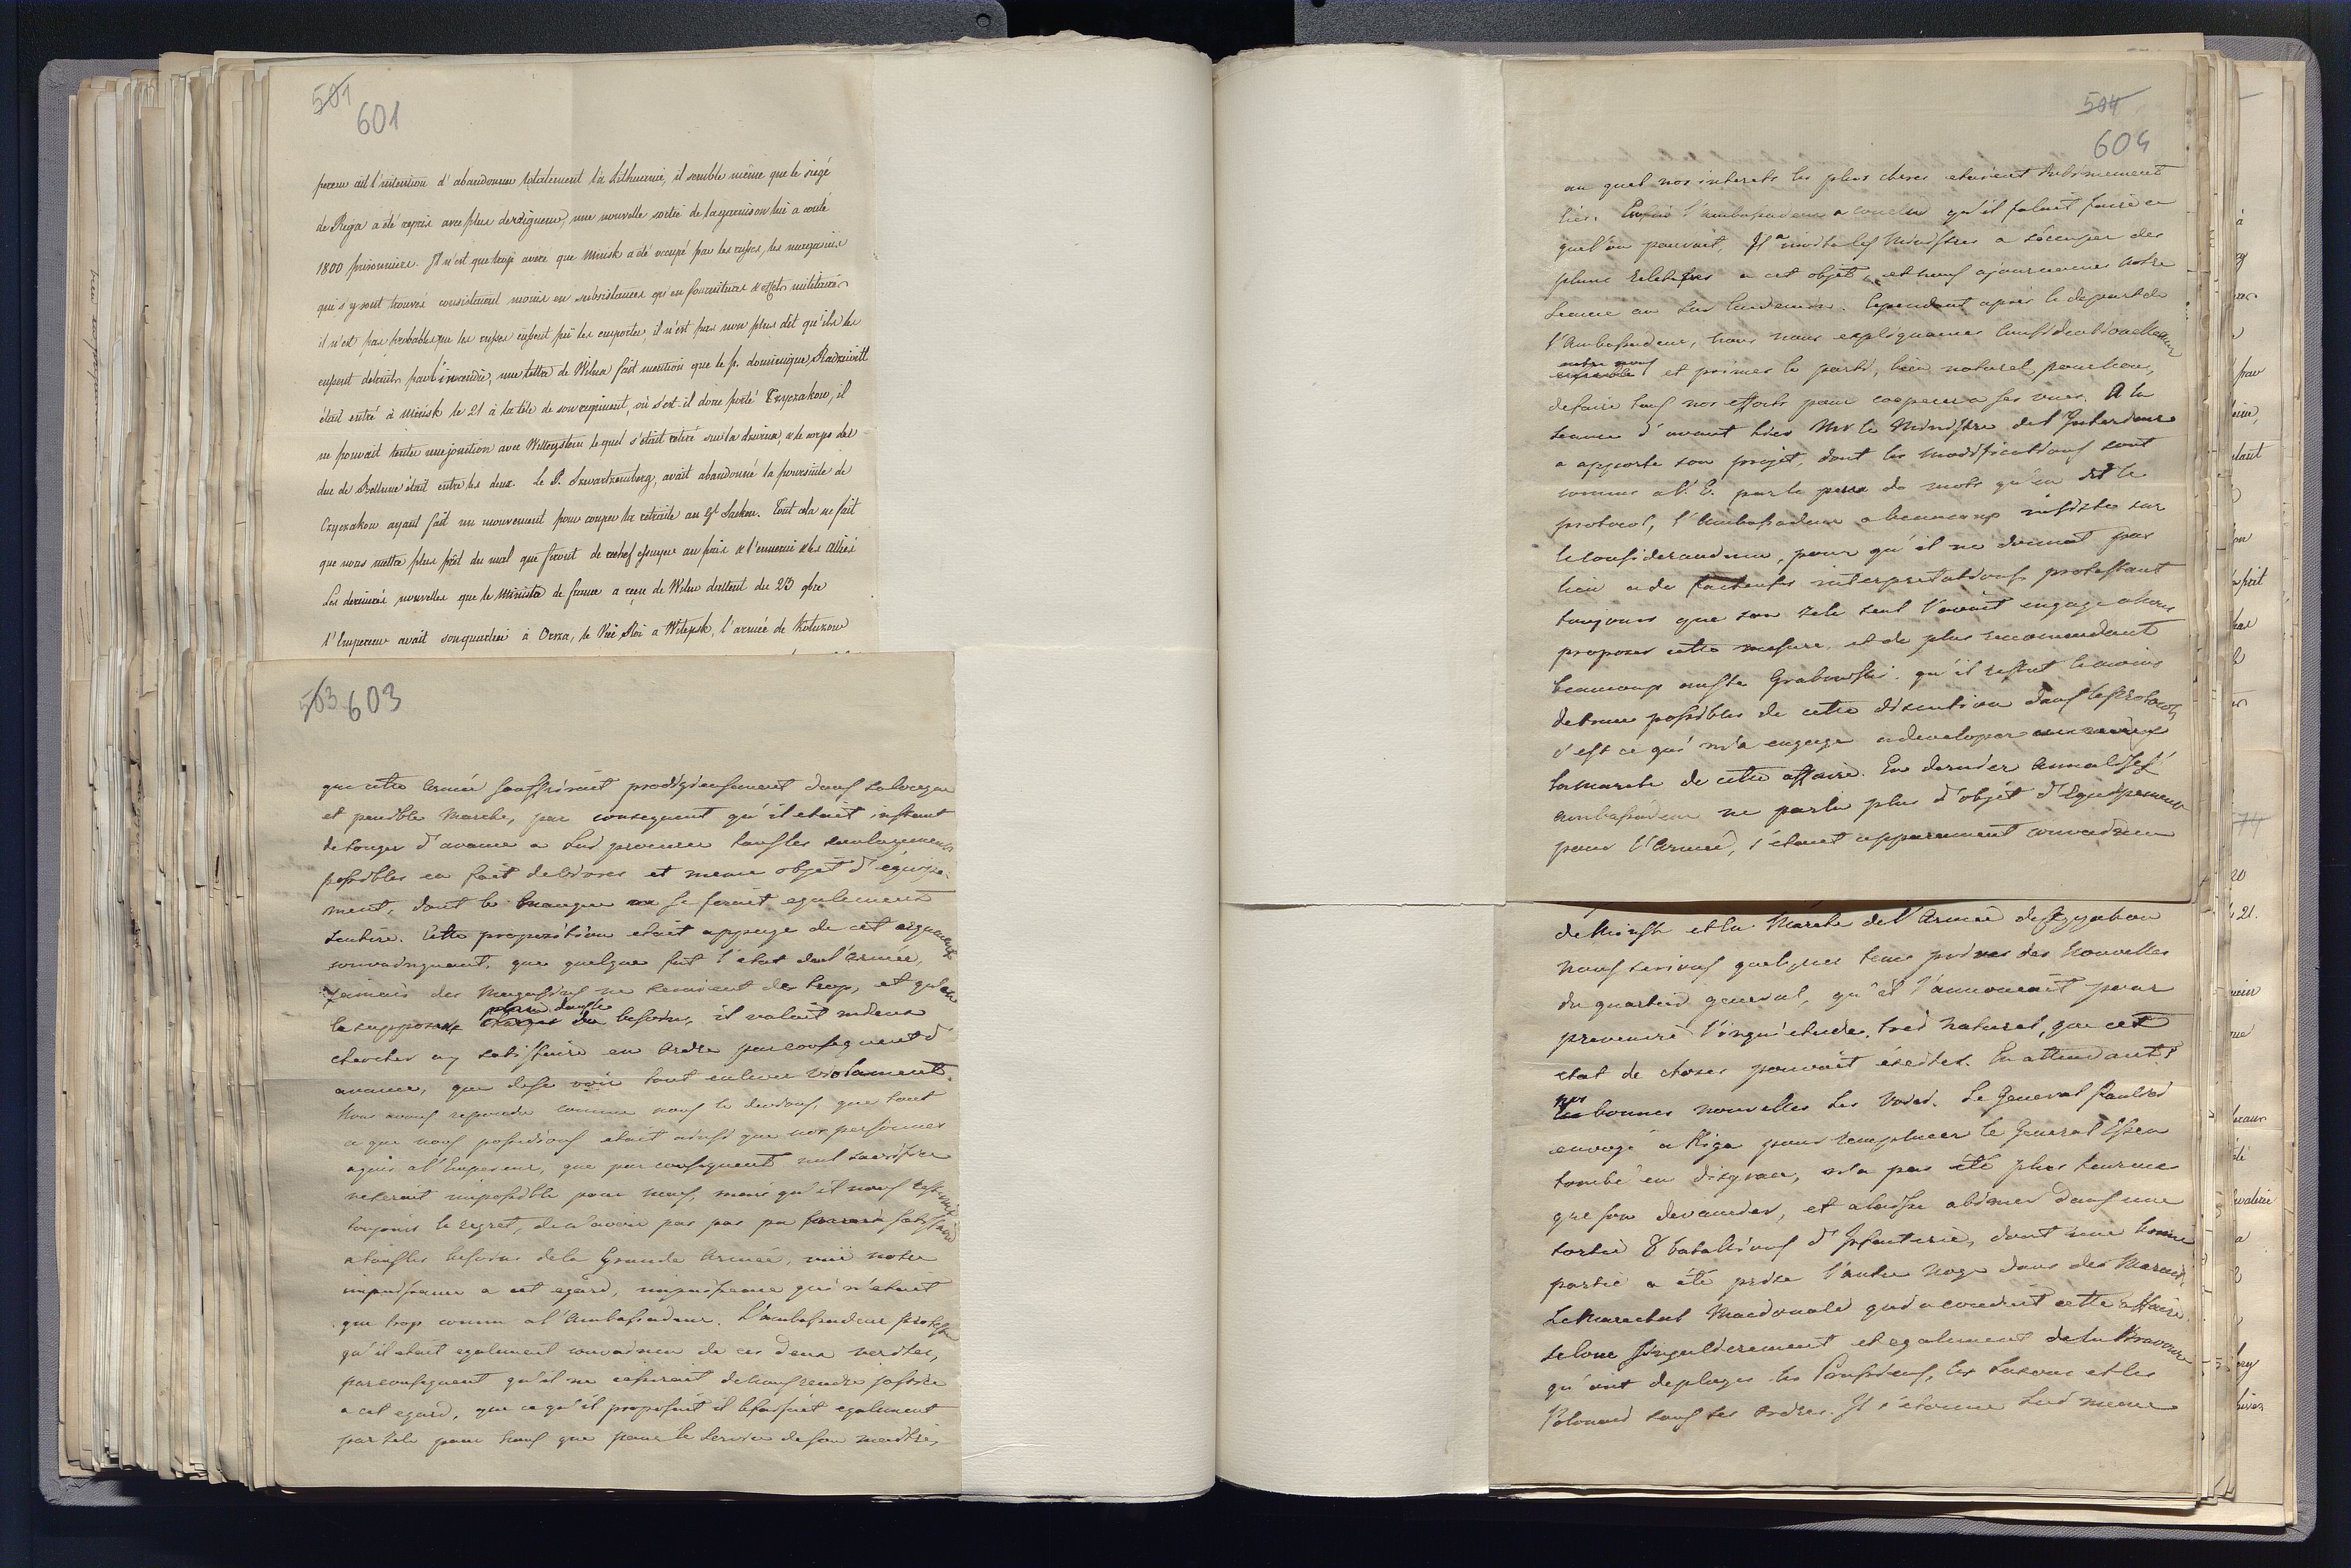 501
601
ait l'intention d'abandonner totalement la Lithuanie, il semble même que le siége
de Riga a été repris avec plus de vigueur, une nouvelle sortie de la garnison lui a couté
1800 prisonniers. Il n'est que trop avéré que Minsk a été occupé par les russes, les magasins
qui s'y sont trouvés consistaient moins en subsistances qu'en fournitures & effets militaires
il n'est pas probable que les russes eussent pû les emporter, il n'est pas non plus dit qu'ils les
eussent detruits par l'incendie, une lettre de Wilna fait mention que le p. dominique Radziwill
était entré à Minsk le 21 à la tête de son regiment, où s'est-il donc porté Czyczakow, il
ne pouvait tenter une jonction avec Wittgystein lequel s'était retiré sur la dzwina, & le corps del
duc de Bellune était entre les deux. Le P. Szwartzemberg, avait abandonné la poursuite de
Czyczakow ayant fait un mouvement pour couper la retraite au Gl Sacken. Tout cela ne fait
que nous mettre plus prêt du mal que feront de rechef essuyer au païs & l'ennemi & les alliés
Les dernieres nouvelles que le Ministre de france a reçu de Wilna dattent du 23 9bre
l'Empereur avait son quartier à Orsza, le Vice Roi a Witepsk, l'armée de Kutuzow
503 603
que cette Armée souffrirait prodigieusement dans sa longue
et penible Marche, par consequent qu'il etait instant
de songer d'avance a lui procurer tous les soulagemens
possibles en fait de vivres et meme objet d'équipe-
ment, dont le manque se ferait egalement
sentire. Cette proposition etait appuyé de cet argument
convainquant, que quelque fut l'etat de l'Armée,
jamais des Magasins ne seraient de trop, et qu'en
le supposant dans le besoin, il valait mieux
chercher a y satisfaire en ordre par consequent d'
avance, que de se voir tout enlever violament.
Nous avons repondu comme nous le devions, que tout
ce que nous possedions etait ainsi que nos personnes
aquis a l'Empereur, que par consequent nul sacrifice
ne serait impossible pour nous, mais qu'il nous
toujours le regret, de n'avoir pas pas pu satisfaire
a tous les besoins de la Grande Armée, vuë notre
impuissance a cet egard, impuissance qui n'etait
que trop connu a l'Ambassadeur. L'ambassadeur protesta
qu'il etait egalement convaincu de ces deux verités,
par consequent qu'il ne cesserait de nous rendre justice
a cet egard, que ce qu'il proposait il le faisait egalement
par zele pour nous que pour le service de son maitre,
504
604
au quel nos interets les plus chers etaient intimement
liés. Enfin l'ambassadeur a conclu qu'il falait faire ce
que l'on pouvait, Il a invité les Ministres a s'occuper des
plans relatifs a cet objet, et nous ajournames notre
seance au sur lendemain. Cependant après le depart de
l'Ambassadeur, nous nous expliquames confidentionellement
entre nous
ensemble et primes le parti, bien naturel pour nous,
de faire tous nos efforts pour cooperer a ses vues. A la
seance d'avant hier Mr le Ministre de l'Interieur
a apporté son projet, dont les modifications sont
connues a V. E. par le peu de mots qu'en dit le
protocol, l'Ambassadeur a beaucoup insisté sur
le considerandum, pour qu'il ne donnat pas
lieu a de facheuses interpretations protestant
toujours que son zele seul l'avait engagé a nous
proposer cette mesure, et de plus recomandant
beaucoup Grabowski qu'il restat le moins
de trace possible de cette discution dans les protocols,
c'est ce qui m'a engagé a developer
la marche de cette affaire. En dernier
ambassadeur ne parla plus d'objet d'Equipement
pour l'Armée, s'étant apparament convaincu
de Minsk et la Marche de l'Armée de Czyczakow
nous serions quelques tems privés des nouvelles
du quartier general, qu'il l'annoncait pour
prevenire l'inquiétude, tres naturel, que cet
etat de choses pouvait éxciter. En attendant
nos
bonnes nouvelles les voici. Le General Paulucci
envoyé a Riga pour remplacer le General Essen
tombé en disgrace, n'a pas été plus heureux
que son devancier, et a laissé abimer dans une
sortie 8 batallions d'Infanterie, dont une bonne
partie a été prise l'autre noyé dans des Marais.
Le Marechal Macdonald qui a conduit cette affaire
se loue singulierement et egalement de la Bravoure
qu'ont deployés les Prussiens, les Saxons et les
Polonais sous ses ordres. Il s'étonne lui meme